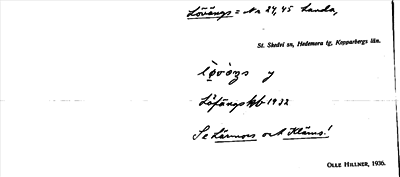 Lövängs = Nr 27, 45 Landa,
St. Skedvi sn, Hedemora tg, Kopparbergs län.
y
Löfängs kb 1932
Se Lännors och Kläms!
OLLE HILLNER, 1936.